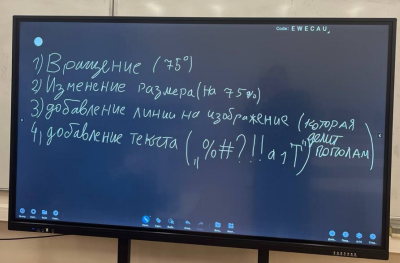 Code: EWECAU
1) Вращение (75°)
2) Изменение размера (на 75%)
3) добавление линии на изображение (которая делит пополам)
4) добавление текста („%#?!!а1Т")